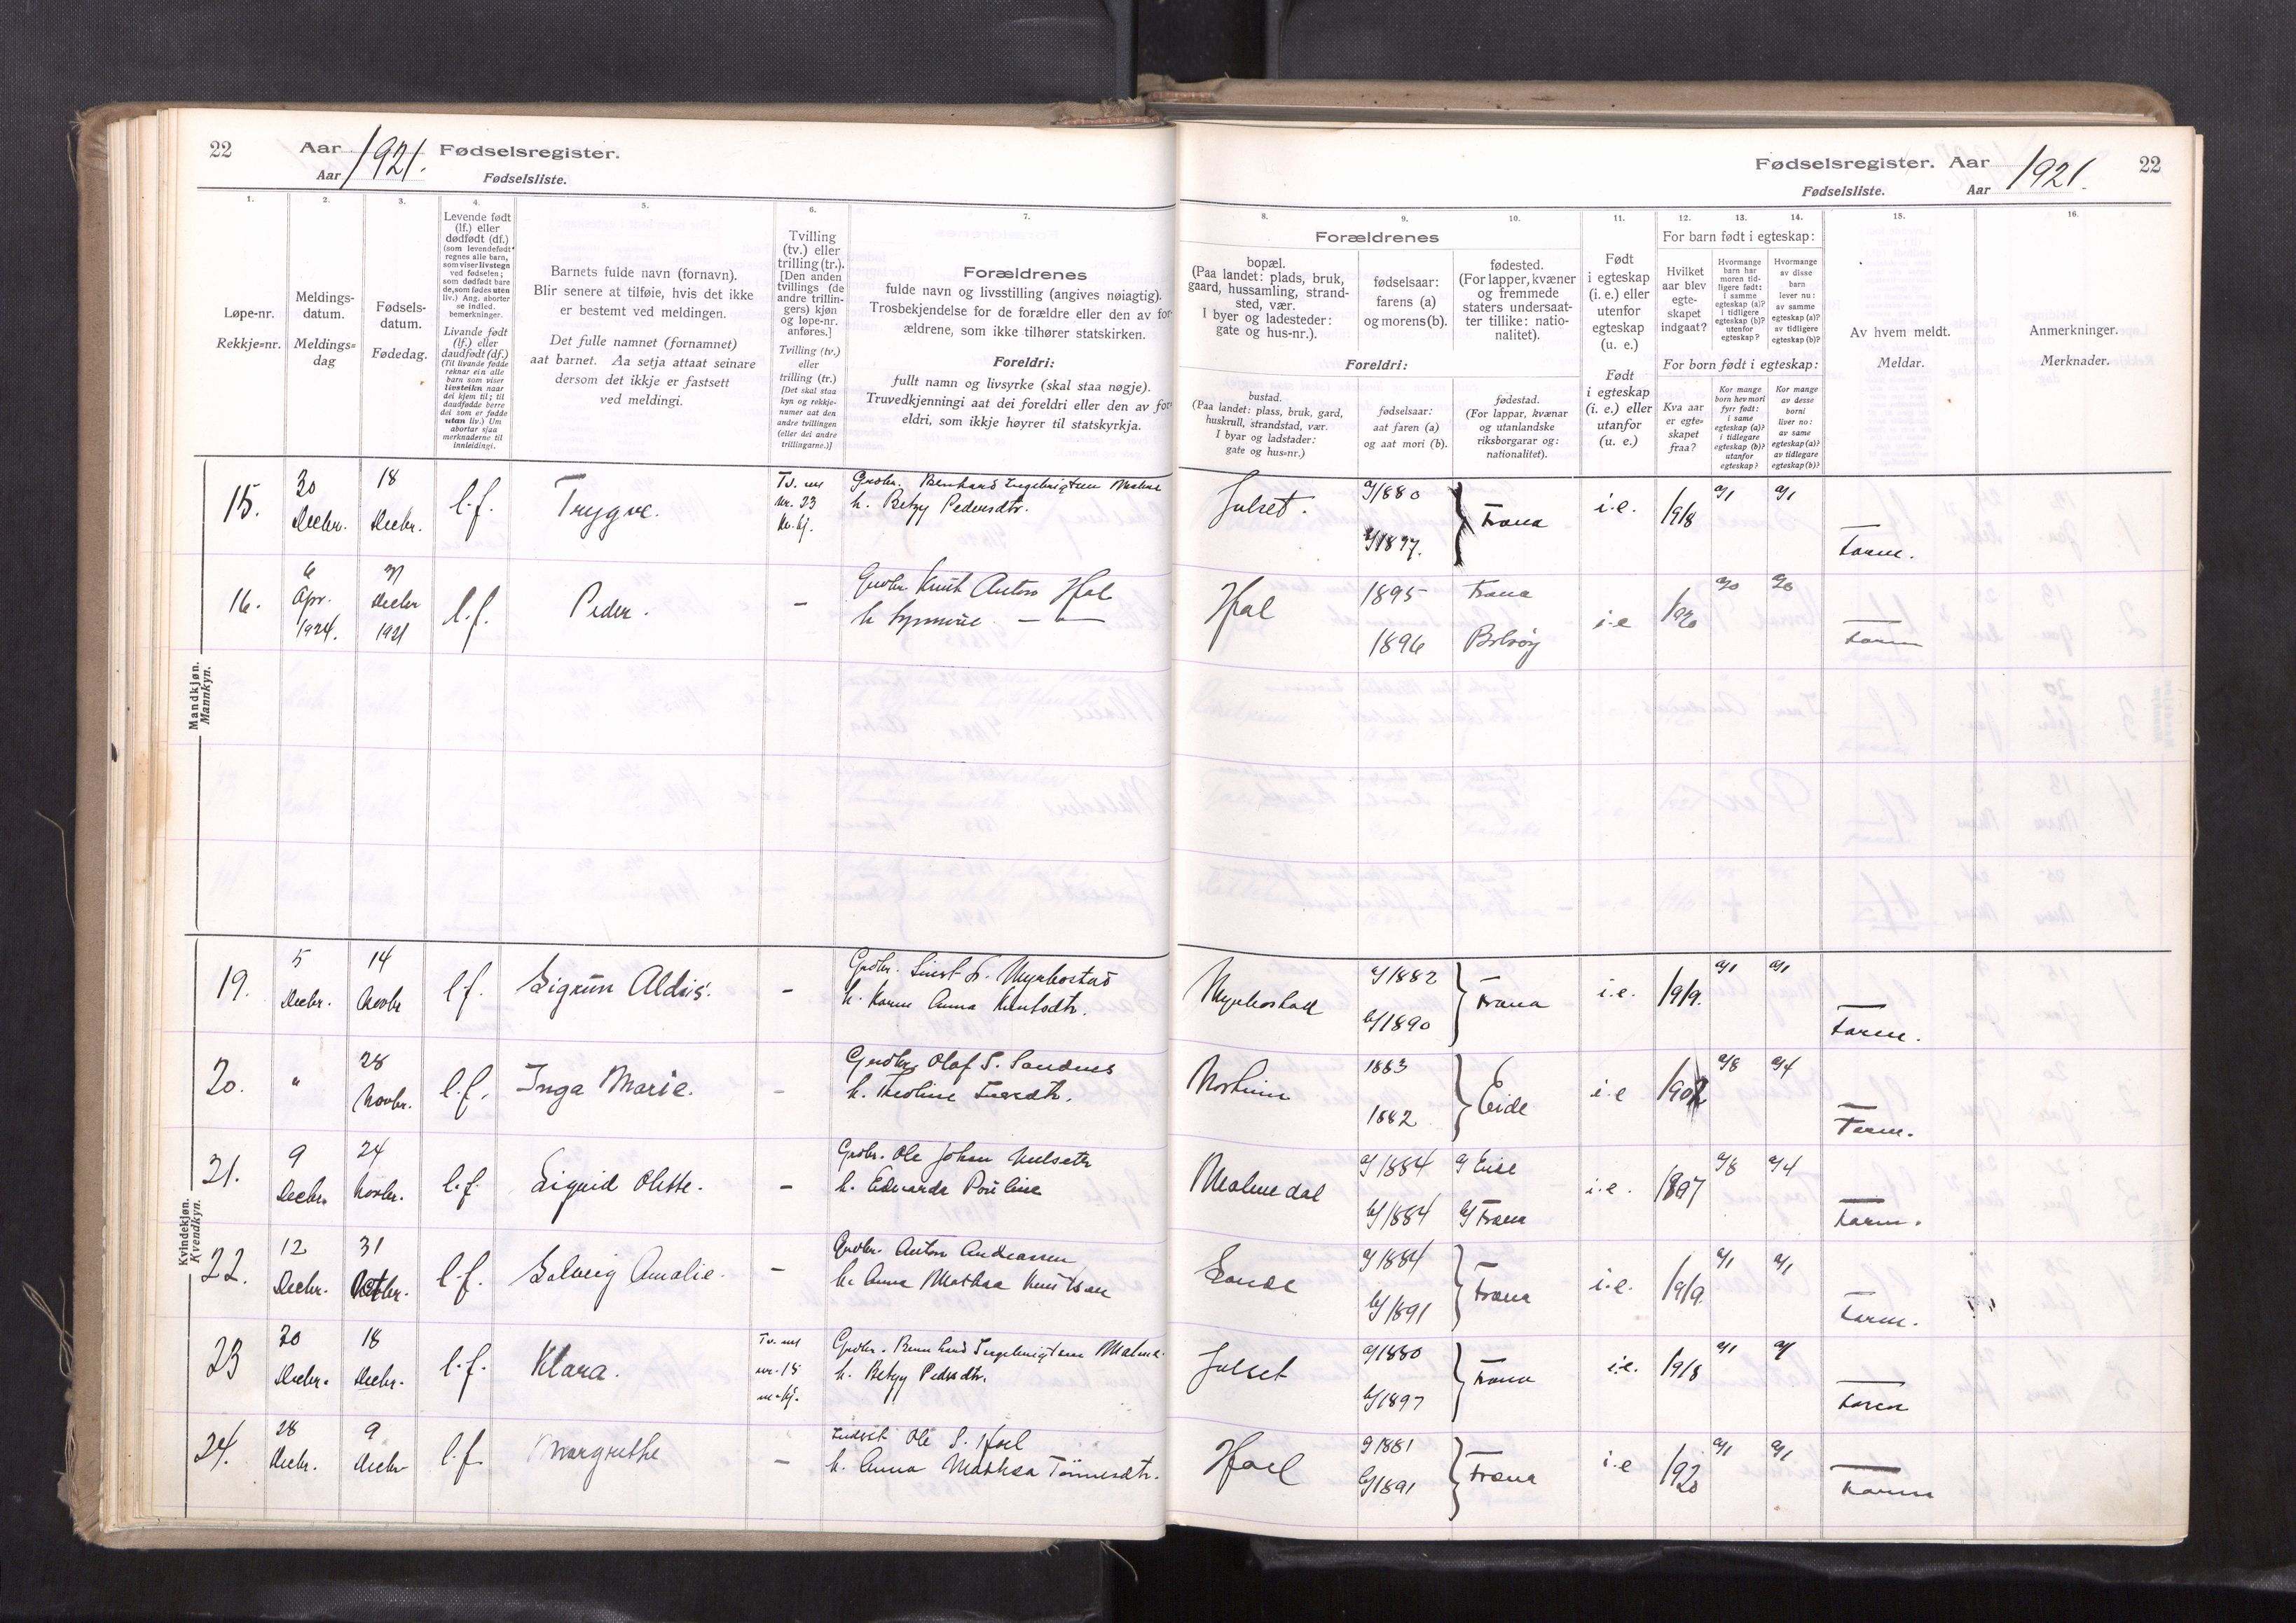 22
Aar 1921. Fødselsregister.
Aar Fødselsliste.
1.
2.
3.
4.
5.
6.
7.
Løpe-nr.
Rekkje=nr.
Meldings-
datum.
Meldings=
dag
Fødsels-
datum.
Fødedag.
Levende født
(lf.) eller
dødfødt (df.)
(som levendefødt
regnes alle barn,
som viser livstegn
ved fødselen;
som dødfødt bare
de, som fødes uten
liv.) Ang. aborter
se indled.
bemerkninger.
Livande født
(lf.) eller
daudfødt (df.)
(Til livande fødde
reknar ein alle
barn som viser
livsteikn naar
dei kjem til; til
daudfødde berre
dei som er fødde
utan liv.) Um
abortar sjaa
merknaderne til
innleidingi.
Barnets fulde navn (fornavn).
Blir senere at tilføie, hvis det ikke
er bestemt ved meldingen.
Det fulle namnet (fornamnet)
aat barnet. Aa setja attaat seinare
dersom det ikkje er fastsett
ved meldingi.
Tvilling
(tv.) eller
trilling (tr.).
[Den anden
tvillings (de
andre trillin-
gers) kjøn
og løpe-nr.
anføres.]
Tvilling (tv.)
eller
trilling (tr.)
[Det skal staa
kyn og rekkje-
numer aat den
andre tvillingen
(eller dei andre
trillingarne.)]
Forældrenes
fulde navn og livsstilling (angives nøiagtig).
Trosbekjendelse for de forældre eller den av for-
ældrene, som ikke tilhører statskirken.
Foreldri:
fullt namn og livsyrke (skal staa nøgje).
Truvedkjenningi aat dei foreldri eller den av for-
eldri, som ikkje høyrer til statskyrkja.
Mandkjøn.
Mannkyn.
15.
30
Decbr.
18
Decbr.
l.f.
Trygve.
Tv. med
nr. 23
kv. kj.
Grdbr. Bernhard Ingebrigtsen Malme
h. Betzy Pedersdtr.
16.
6
Apr.
1924.
31
Decbr
1921
l.f.
Peder.
-
Grdbr Knut Anton Hol
h Synnøve — " —
Kvindekjøn.
Kvendkyn.
19.
5
Decbr.
14
Novbr
l.f.
Sigrun Aldis.
-
Myrbostad
h. Karen Anna Knutsdtr.
20.
"
28
Novbr.
l.f.
Inga Marie.
-
Grdbr. Olaf S. Sandnes
21.
9
Decbr.
24
Novbr.
l.f.
Sigrid Olette.
-
Grdbr. Ole Johan
h. Edvarda Pouline
22.
12
Decbr.
31
Octbr.
l.f.
Solveig Amalie.
-
Grdbr. Anton Andreassen
h. Anna Mathea Knutsen
23
30
Decbr.
18
Decbr.
l.f.
Klara.
Tv. med
nr. 15
m. kj.
Grdbr. Bernhard Ingebrigtsen Malme.
h. Betzy Pedersdtr.
24.
28
Decbr.
9
Decbr
l.f.
Margrethe
-
Ole S. Hoel
h. Anna Mathea Tønnesdtr.
Fødselsregister. Aar 1921. 22
Fødselsliste. Aar
8.
9.
10.
11.
12.
13.
14.
15.
16.
Forældrenes
bopæl.
(Paa landet: plads, bruk,
gaard, hussamling, strand-
sted, vær.
I byer og ladesteder:
gate og hus-nr.).
fødselsaar:
farens (a)
og morens (b).
fødested.
(For lapper, kvæner
og fremmede
staters undersaat-
ter tillike: natio-
nalitet).
Foreldri:
bustad.
(Paa landet: plass, bruk, gard,
huskrull, strandstad, vær.
I byar og ladstader:
gate og hus=nr.)
fødselsaar:
aat faren (a)
og aat mori (b).
fødestad.
(For lappar, kvænar
og utanlandske
riksborgarar og:
nationalitet).
Født
i egteskap
(i. e.) eller
utenfor
egteskap
(u. e.)
Født
i egteskap
(i. e.) eller
utanfor
(u. e.)
For barn født i egteskap:
Hvilket
aar blev
egte-
skapet
indgaat?
Hvormange
barn har
moren tid-
ligere født:
i samme
egteskap (a)?
i tidligere
egteskap (b)?
utenfor
egteskap?
Hvormange
av disse
barn
lever nu:
av samme
egteskap (a)?
av tidligere
egteskap (b)?
For born født i egteskap:
Kva aar
er egte=
skapet
fraa?
Kor mange
born hev mori
fyrr født:
i same
egteskap (a)?
i tidlegare
egteskap (b)?
utanfor
egteskap?
Kor mange
av desse
borni
liver no:
av same
egteskap (a)?
av tidlegare
egteskap (b)?
Av hvem meldt.
Meldar.
Anmerkninger.
Merknader.
Julset.
a/1880
b/1897.
Fræna
i.e.
1918
a/1
a/1
Farm.
Hol
1895
1896
Fræna
Bolsøy
i.e
1920
a/0
a/0
Farm
Myrbostad
a/1882
b/1890
Fræna
i.e.
1919.
a/1
a/1
Farm.
1883
1882
Eide
i.e
1902
a/8
a/4
Farm.
Malmedal
a/1884
b/1884
a/ Eide
b/ Fræna
i.e.
1897
a/8
a/4
Farm.
Sande
a/1884
b/1891
Fræna
i.e.
1919.
a/1
a/1
Farm.
Julset
a/1880
b/1897
Fræna
i.e.
1918
a/1
Farm
Hoel
a/1881
b/1891
Fræna
i.e
1920
a/1
a/1
Farm